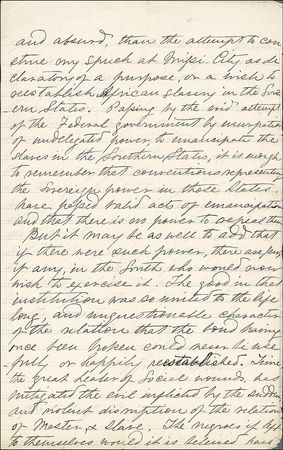 and absurd, than the attempt to con
strue my speech at Missi. City as de
claratory of a purpose, or a wish to
reestablish African Slavery in the Sou
ern States. Passing by the evil attempt
of the Federal government by usurpation
of undelegated power, to emancipate the
slaves in the Southern States, it is enough
to remember that conventions representing
the Sovereign power in those States,
have passed valid acts of emancipation
and that there is no power to repeal them
But it may be as well to add that
if there were such power, there are few
if any, in the South who would now
wish to exercise it. The good in that
institution was so united to the life
long, and unquestionable character
of the relation that the bond having
once been broken could never be use
fully or happily reestablished. Time
the great healer of social wounds, has
mitigated the evil inflicted by the sudden
and violent disruption of the relation
of Master & Slave. The negroes if left
to themselves would it is believed have